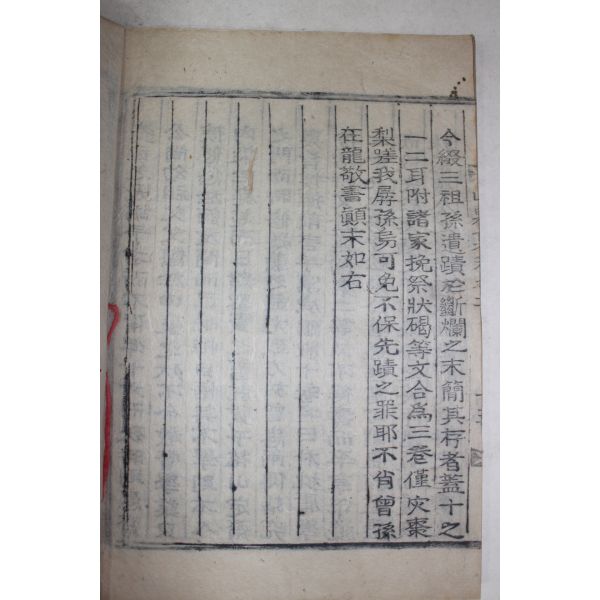 今綴三祖孫遺蹟於斷爛之末簡其存者蓋十之
一二耳附諸家挽祭狀碣等文合爲三卷僅灾棗
梨嗟我孱孫曷可免不保先蹟之罪耶不肖曾孫
在龍敬書顚末如右